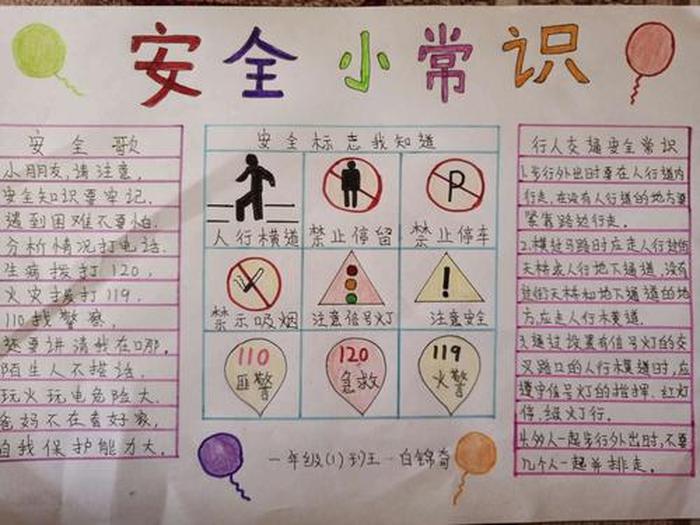 安全小常识
安全歌
小朋友,请注意,
安全知识要牢记.
遇到困难不要怕.
分析情况打电话.
生病拨打120,
火灾拨打119.
110找警察,
还要讲清我在哪.
陌生人不搭话.
玩火玩电危险大.
爸妈不在看好家,
自我保护能力大.
安全标志我知道
P
人行横道 禁止停留 禁止停车
禁示吸烟 注意信号灯 注意安全
110 120 119
匪警 急救 火警
一年级(1)班
行人交通安全常识
1.步行外出时要在人行道内
行走,在没有人行道的地方要
紧靠路边行走.
2.横过马路时应走人行过街
天桥或人行地下通道,没有
过街天桥和地下通道的地
方,应走人行横道.
3.通过设置有信号灯的交
叉路口的人行横道时,应
遵守信号灯的指挥.红灯
停,绿灯行.
4.多人一起步行外出时,不要
几个人一起并排走.